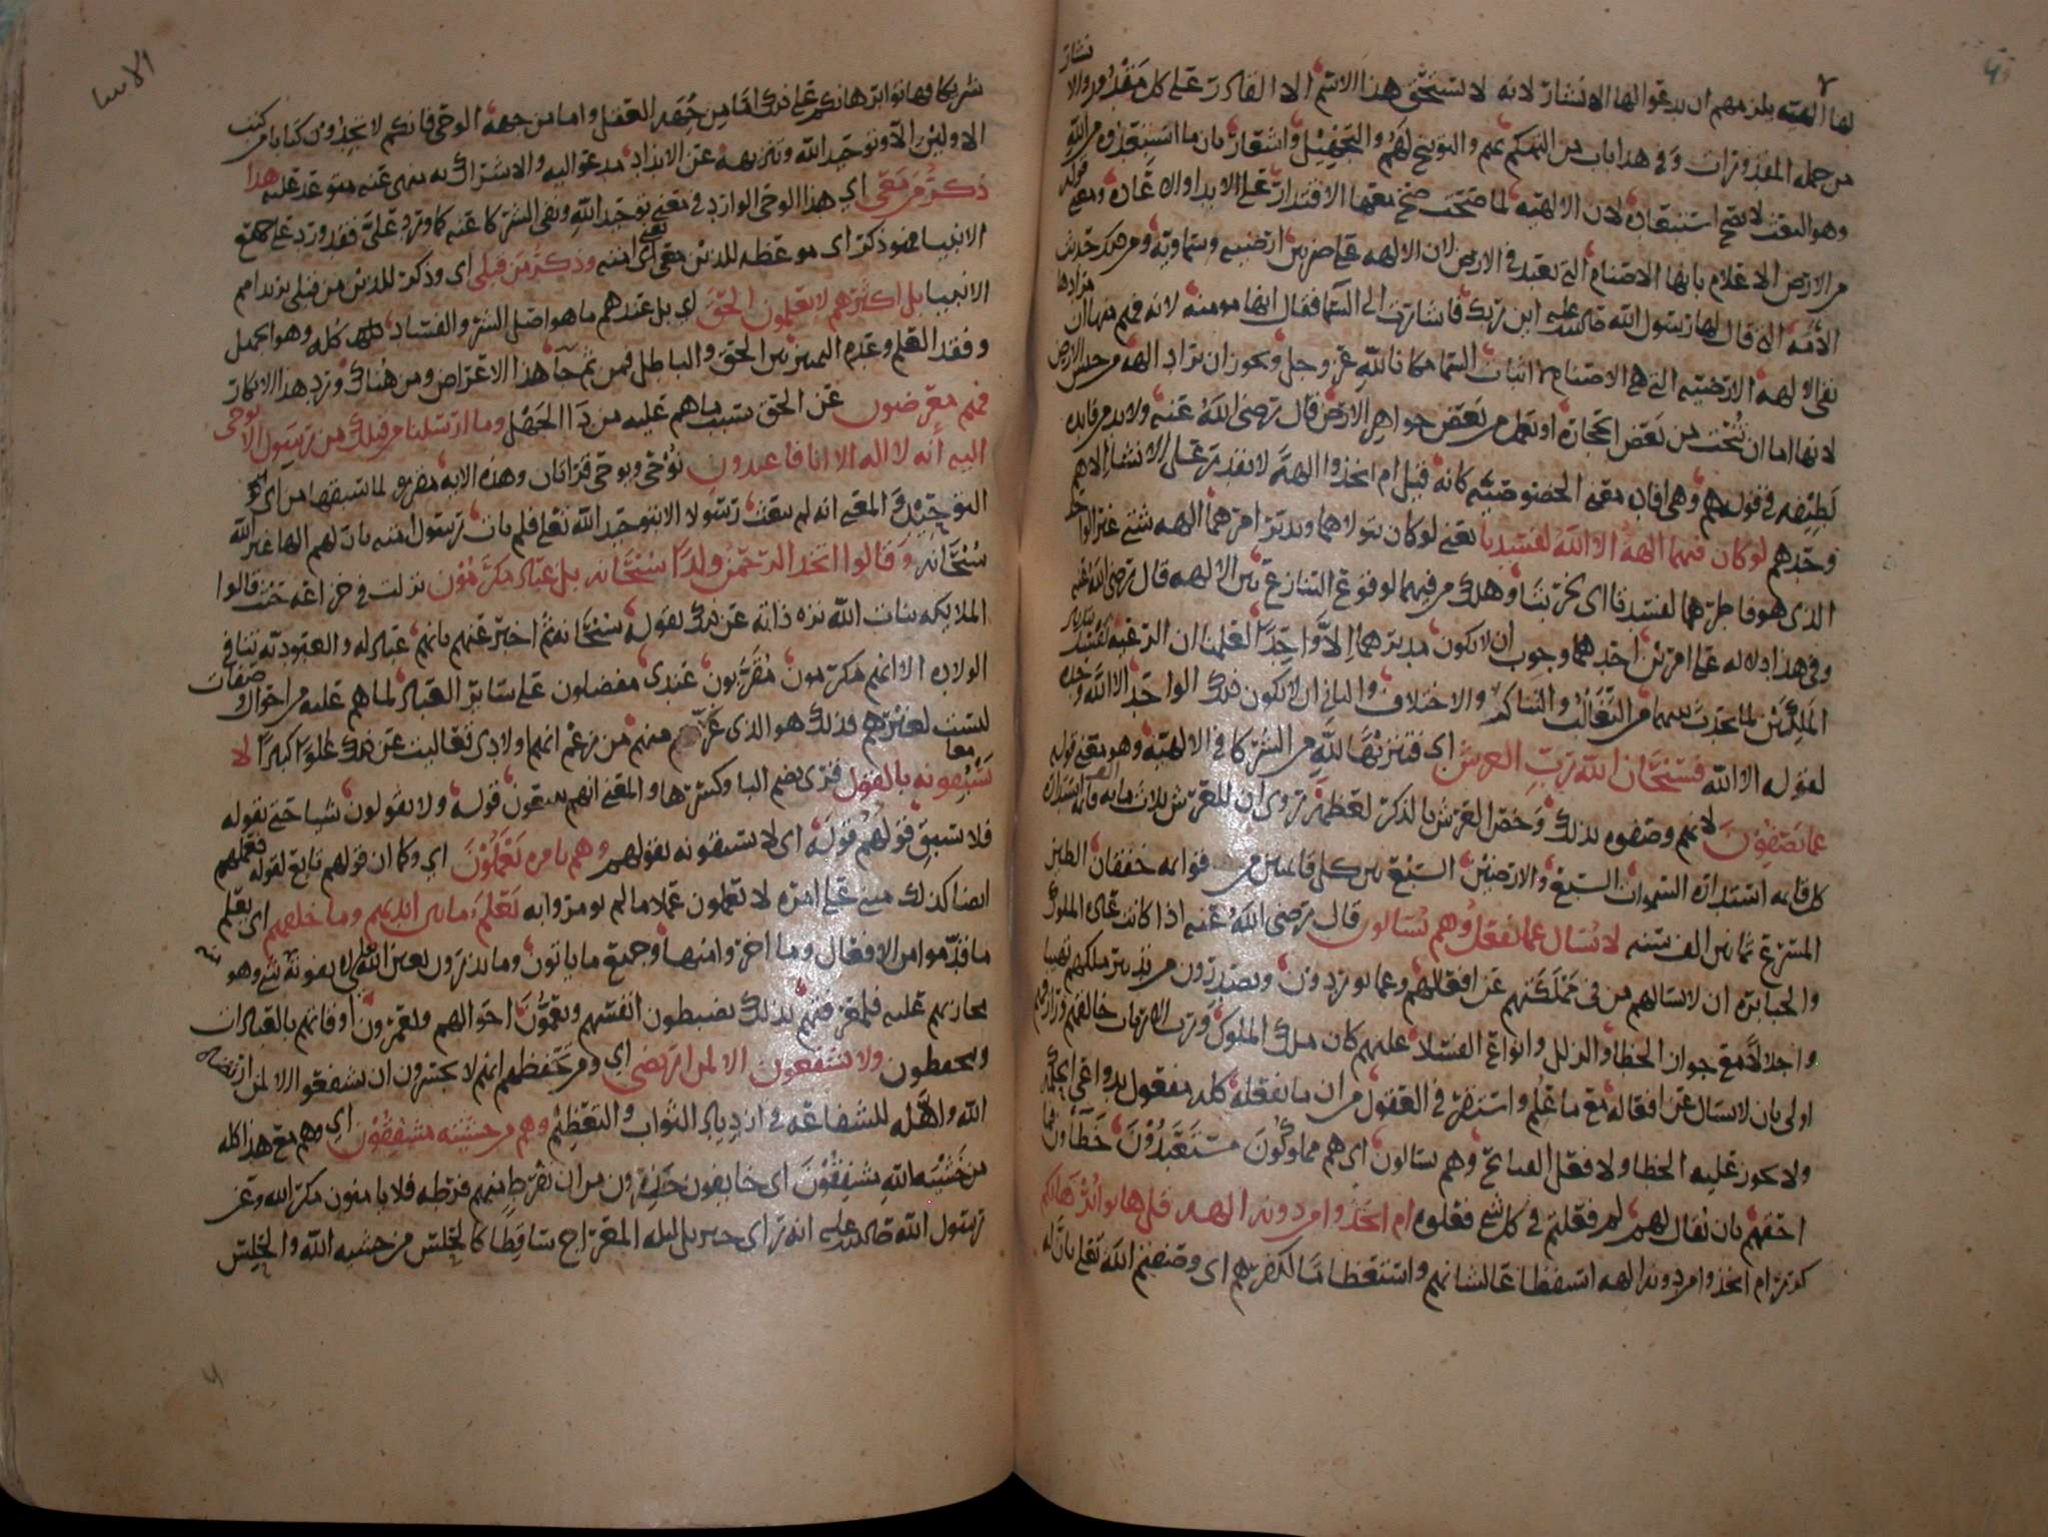 لها الهيه يلزمهم ان يدعوا لها الانشار لانه لا يستحق هذا الاسم الا القادر على كل مقدور والانشار
من جمله المقدورات وفي هذا باب من التهكم بهم والتوبيخ لهم والتجهيل واشعار بان ما استبعدوه من الله
وهو البعث لا يصح استبعاده لان الالهيه لما صحت صح معها الاقتدار على الابدا والاعاده ومعنى قوله
من الارض الاعلام بانها الاصنام التي تعبد في الارض لان الالهه على ضربين ارضيه وسماويه ومن ذلك حديث
الأمه التي قال لها رسول الله صلى الله عليه اين ربك فاشارت الى السما فقال انها مومنه لانه فهم منها ان مرادها
نفي الالهه الارضيه التي هي الاصنام لا اثبات السما مكانا لله عز وجل ويجوز ان يراد الهه من جنس الارض
لانها اما ان تنحت من بعض الحجاره او تعمل من بعض جواهر الارض قال رضي الله عنه ولا بد من فايده
لطيفه في قوله هم وهي افاده معنى الخصوصيه كانه قيل ام اتخذوا الهة لا تقدر على الانشار الا هم
وحدهم لو كان فيهما الهة الا الله لفسدتا يعني لو كان يتولاهما ويدبر امرهما الهه شتى غير الواحد
الذي هو فاطرهما لفسدتا اي لخربتا وهلك من فيهما لوقوع التنازع بين الالهه قال رضي الله عنه
وفي هذا دلاله على امرين احدهما وجوب ان لا يكون مدبرهما الا واحدا لعلمنا ان الرعيه تفسد بتدبير
الملكين لما يحدث بينهما من التغالب والتناكر والاختلاف والثاني ان لا يكون ذلك الواحد الا الله وحده
لقوله الا الله فسبحان الله رب العرش اي فتنزيها لله من الشركا في الالهيه وهو معنى قوله
عما يصفون لانهم وصفوه بذلك وخص العرش بالذكر لعظمه روي ان للعرش ثلاث مايه قايمه استداره
كل قايمه استداره السموات السبع والارضين السبع بين كل قايمتين من قوايمه خفقان الطير
المسرع ثمانين الف سنه لا يسال عما يفعل وهم يسالون قال رضي الله عنه اذا كانت عاده الملوك
والجبابره ان لا يسالهم من في مملكتهم عن افعالهم وعما يوردون ويصدرون من تدبير ملكهم تهيبا
واجلالا مع جواز الخطا والزلل وانواع الفساد عليهم كان ملك الملوك ورب الارباب خالقهم ورازقهم
اولى بان لا يسال عن افعاله مع ما علم واستقر في العقول من ان ما يفعله كله مفعول بدواعي الحكمه
ولا يجوز عليه الخطا ولا فعل القبائح وهم يسالون اي هم مملوكون مستعبدون خطاون فما
احقهم بان يقال لهم لم فعلتم في كل شي فعلوه ام اتخذوا من دونه الهه قل هاتوا برهانكم
كرر ام اتخذوا من دونه الهه استفظاعا لشانهم واستعظاما لكفرهم اي وصفتم الله تعالى بان له
الانبيا
شريكا فهاتوا برهانكم على ذلك اما من جهه العقل واما من جهه الوحي فانكم لا تجدون كتابا من كتب
الاولين الا وتوحيد الله وتنزيهه عن الانداد مدعو اليه والاشراك به منهى عنه متوعد عليه هذا
ذكر من معي اي هذا الوحي الوارد في معنى توحيد الله ونفي الشركا عنه كما ورد علي فقد ورد على جميع
الانبيا فهو ذكر اي موعظه للذين معي يعني امته وذكر من قبلي اي وذكر للذين من قبلي يريد امم
الانبيا بل اكثرهم لا يعلمون الحق اي بل عندهم ما هو اصل الشر والفساد كله وهو الجهل
وفقد العلم وعدم التمييز بين الحق والباطل فمن ثم جا هذا الاعراض ومن هناك ورد هذا الانكار
فهم معرضون عن الحق بسبب ما هم عليه من دا الجهل وما ارسلنا من قبلك من رسول الا يوحى
اليه أنه لا اله الا انا فاعبدون نوحي ويوحى قرأتان وهذه الايه مقررة لما سبقها من اي
التوحيد والمعنى انه لم يبعث رسولا الا بتوحيد الله تعالى فلم يات رسول امته بان لهم الها غير الله
سبحانه وقالوا اتخذ الرحمن ولدا سبحانه بل عباد مكرمون نزلت في خزاعه حيث قالوا
الملايكه بنات الله نزه ذاته عن ذلك بقوله سبحانه ثم اخبر عنهم بانهم عباد له والعبوديه تنافي
الولاده الا انهم مكرمون مقربون عندي مفضلون على ساير العباد لما هم عليه من احوال وصفات
ليست لغيرهم فذلك هو الذي غر منهم من زعم انهم اولادي تعاليت عن ذلك علوا كبيرا لا
يسبقونه بالقول قري بضم البا وكسرها والمعنى انهم يتبعون قوله ولا يقولون شيا حتى يقوله
فلا يسبق قولهم قوله اي لا يسبقونه بقولهم وهم بامره يعملون اي وكما ان قولهم تابع لقوله فعملهم
ايضا كذلك مبني على امره لا يعملون عملا ما لم يومروا به يعلم ما بين ايديهم وما خلفهم اي يعلم
ما قدموا من الافعال وما اخروا منها وجميع ما ياتون وما يذرون بعين الله لا يفوته شي وهو
مجازيهم عليه فلمعرفتهم بذلك يضبطون انفسهم ويعمرون اوقاتهم بالعبادات
ويحفظون ولا يشفعون الا لمن ارتضى اي ومن تحفظهم انهم لا يجسرون ان يشفعوا الا لمن ارتضاه
الله واهله للشفاعه في ازدياد الثواب والتعظيم وهم من خشيته مشفقون اي وهم مع هذا كله
من خشيه الله مشفقون اي خايفون حذرون من ان تفرط منهم فرطه فلا يامنون مكر الله وعن
رسول الله صلى الله عليه انه راى جبريل ليله المعراج ساقطا كالحلس من خشيه الله والحلس